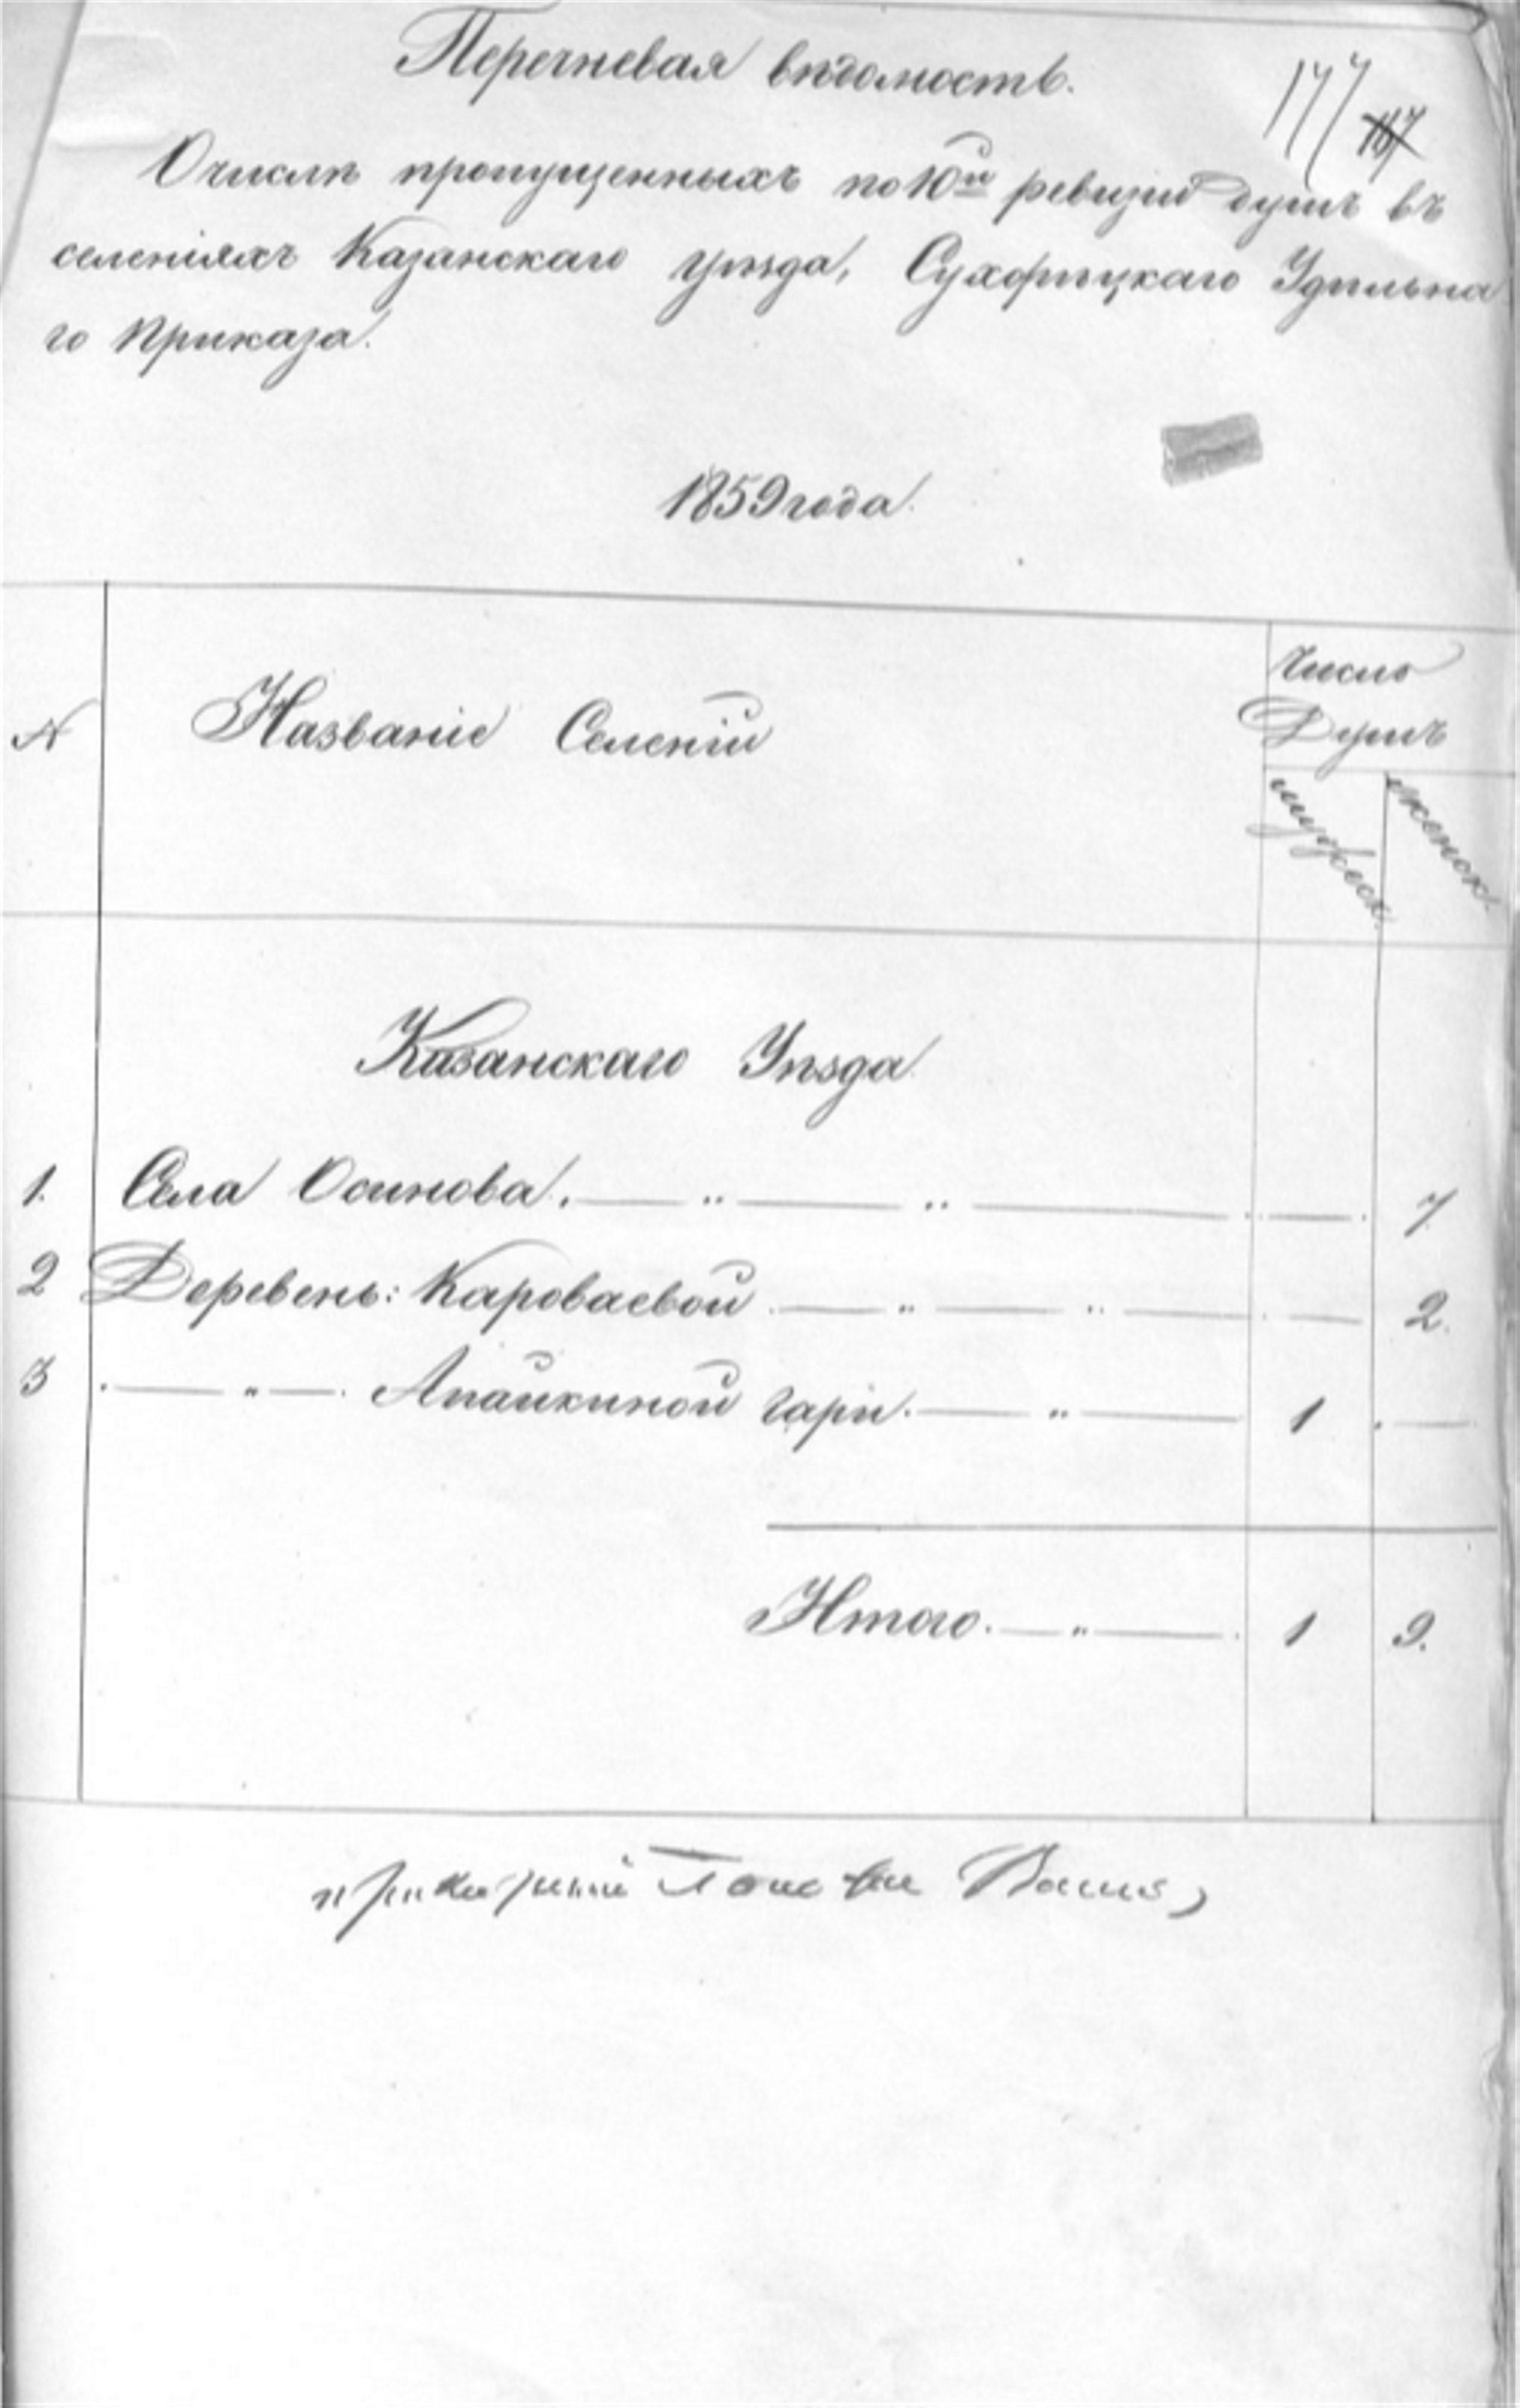 Перечневая вѣдомость.
177
Очислѣ пропущенныхъ по 10ой ревизіи душъ въ
селеніяхъ Казанскаго уѣзда, Сухорѣцкаго Удѣльна
го Приказа.
1859 года.
№ Названіе Селеній Число Душъ мужеск. женск.
Казанскаго Уѣзда
1. Села Осинова. — " — " — 7.
2 Деревень: Караваевой — " — " — 2.
3 — " — Апайкиной гари. — " — 1 —
Итого. — " — 1 9.